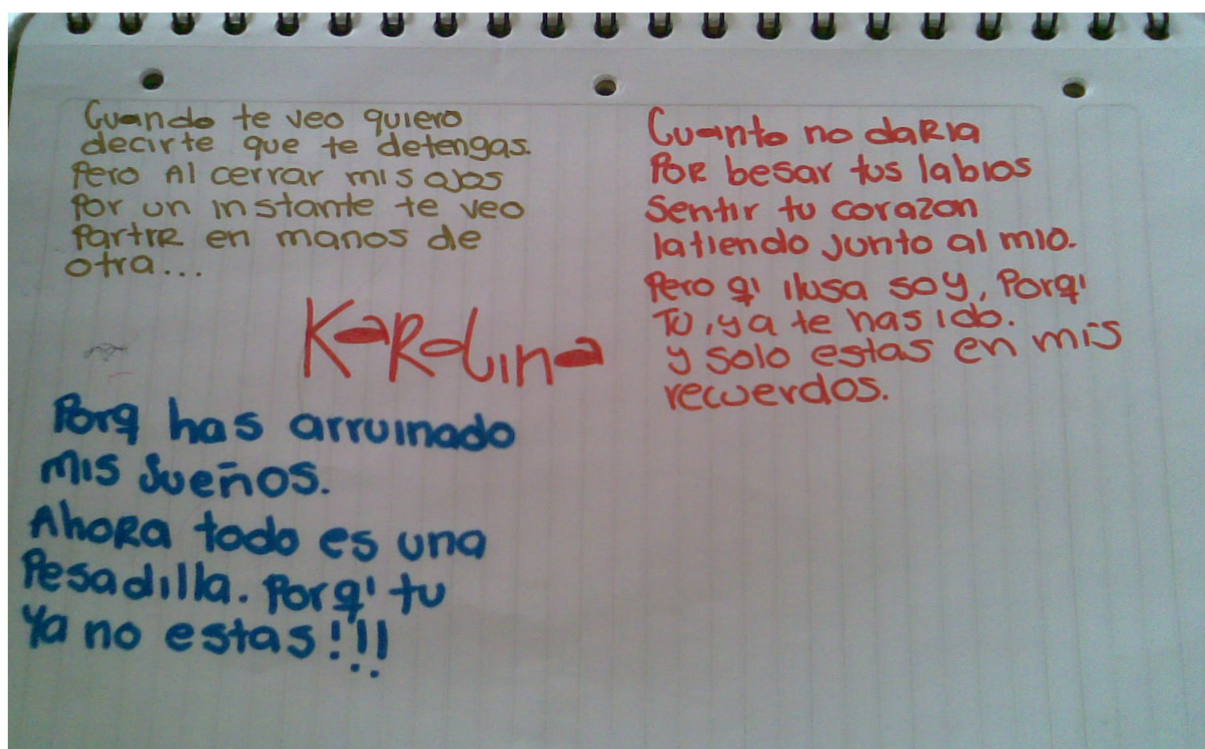 Cuando te veo quiero
decirte que te detengas.
Pero Al cerrar mis ojos
Por un instante te veo
PartiR en manos de
otra...
KaRolina
Porq has arruinado
mis Sueños.
AhoRa todo es una
Pesadilla. Porq' tu
Ya no estas!!!
Cuanto no daRia
PoR besar tus labios
Sentir tu corazon
latiendo junto al mio.
Pero q' ilusa soy, Porq'
TU, ya te has ido.
y solo estas en mis
recuerdos.